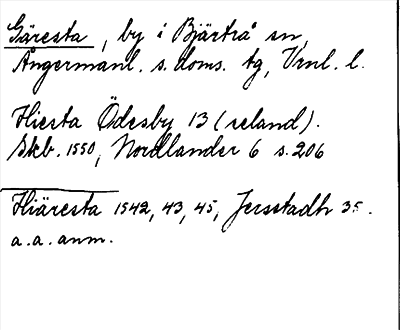 Gäresta, by i Bjärtrå sn,
Ångermanl. s. doms. tg, Vrnl. l.
Hiesta Ödesby 13 (reland).
Skb. 1550, Nordlander 6 s. 206
Hiäresta 1542, 43, 45, Jersstadh 35.
a. a. anm.